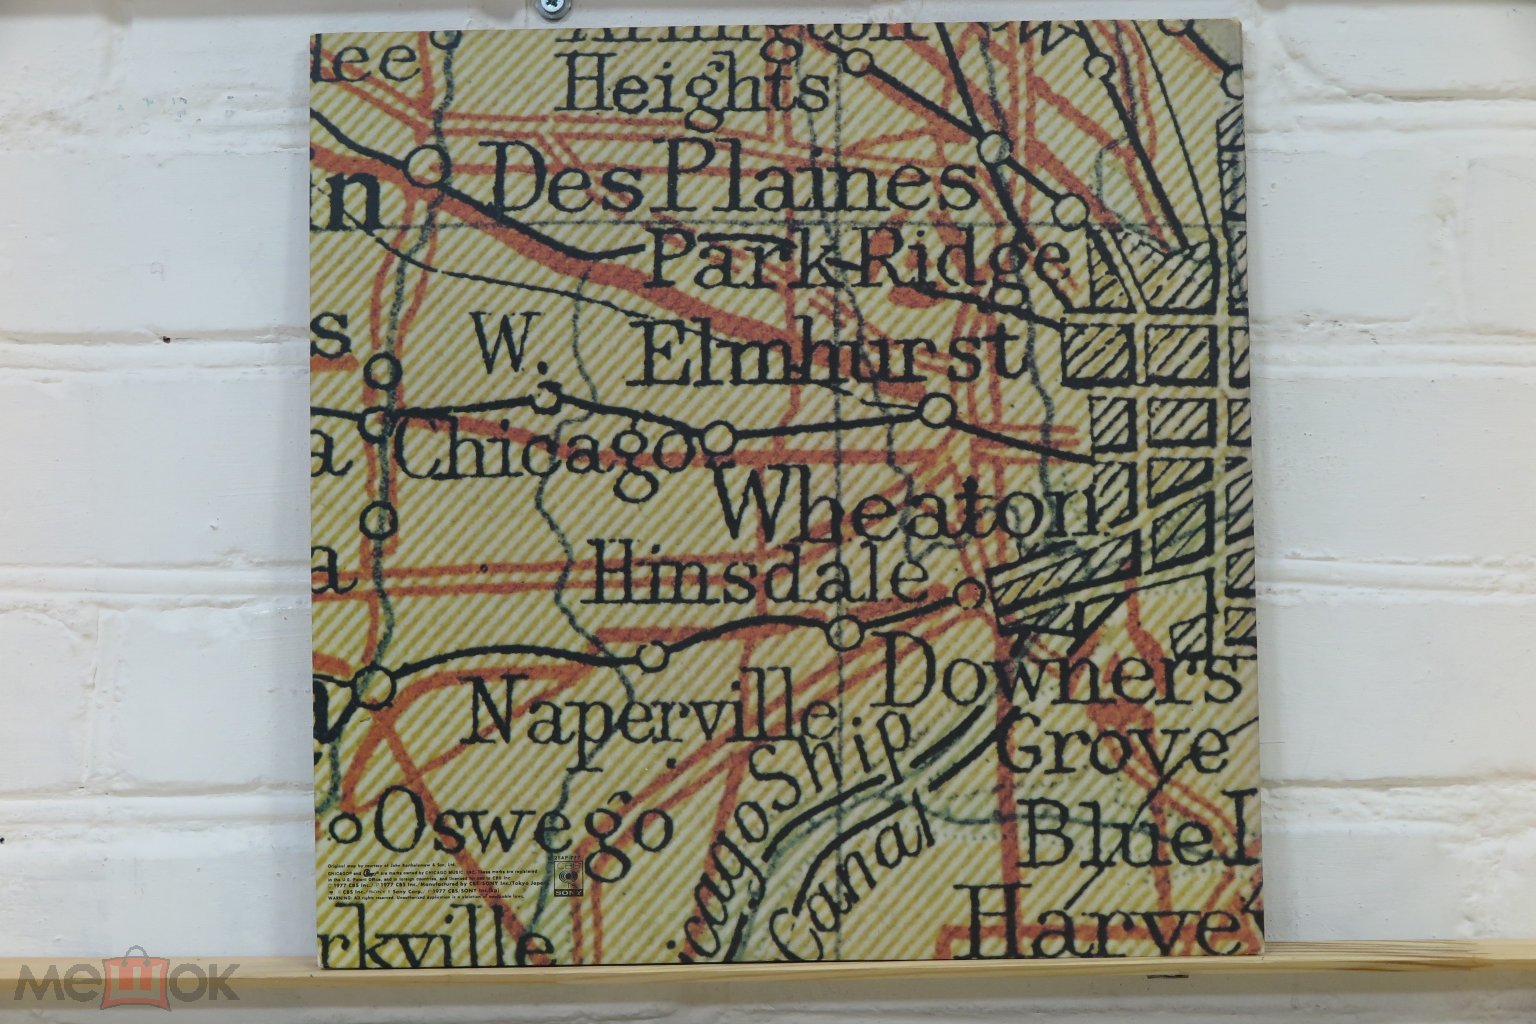 lee
Arlington
Heights
Des Plaines
n
Park Ridge
s
W.
Elmhurst
a
Chicago
Wheaton
a
Hinsdale
Downers
Naperville
Grove
icago Ship
Canal
Oswego
Blue I
Original map by courtesy of John Bartholomew & Son, Ltd.
CHICAGO® and Chicago® are marks owned by CHICAGO MUSIC, INC. These marks are registered
in the U.S. Patent Office, and in foreign countries, and licensed for use to CBS Inc.
1977 CBS Inc./ 1977 CBS Inc./Manufactured by CBS/SONY Inc./Tokyo Japan
WARNING: All rights reserved. Unauthorized duplication is a violation of applicable laws.
25AP 777
CBS
SONY
rkville
Harvey
мешок